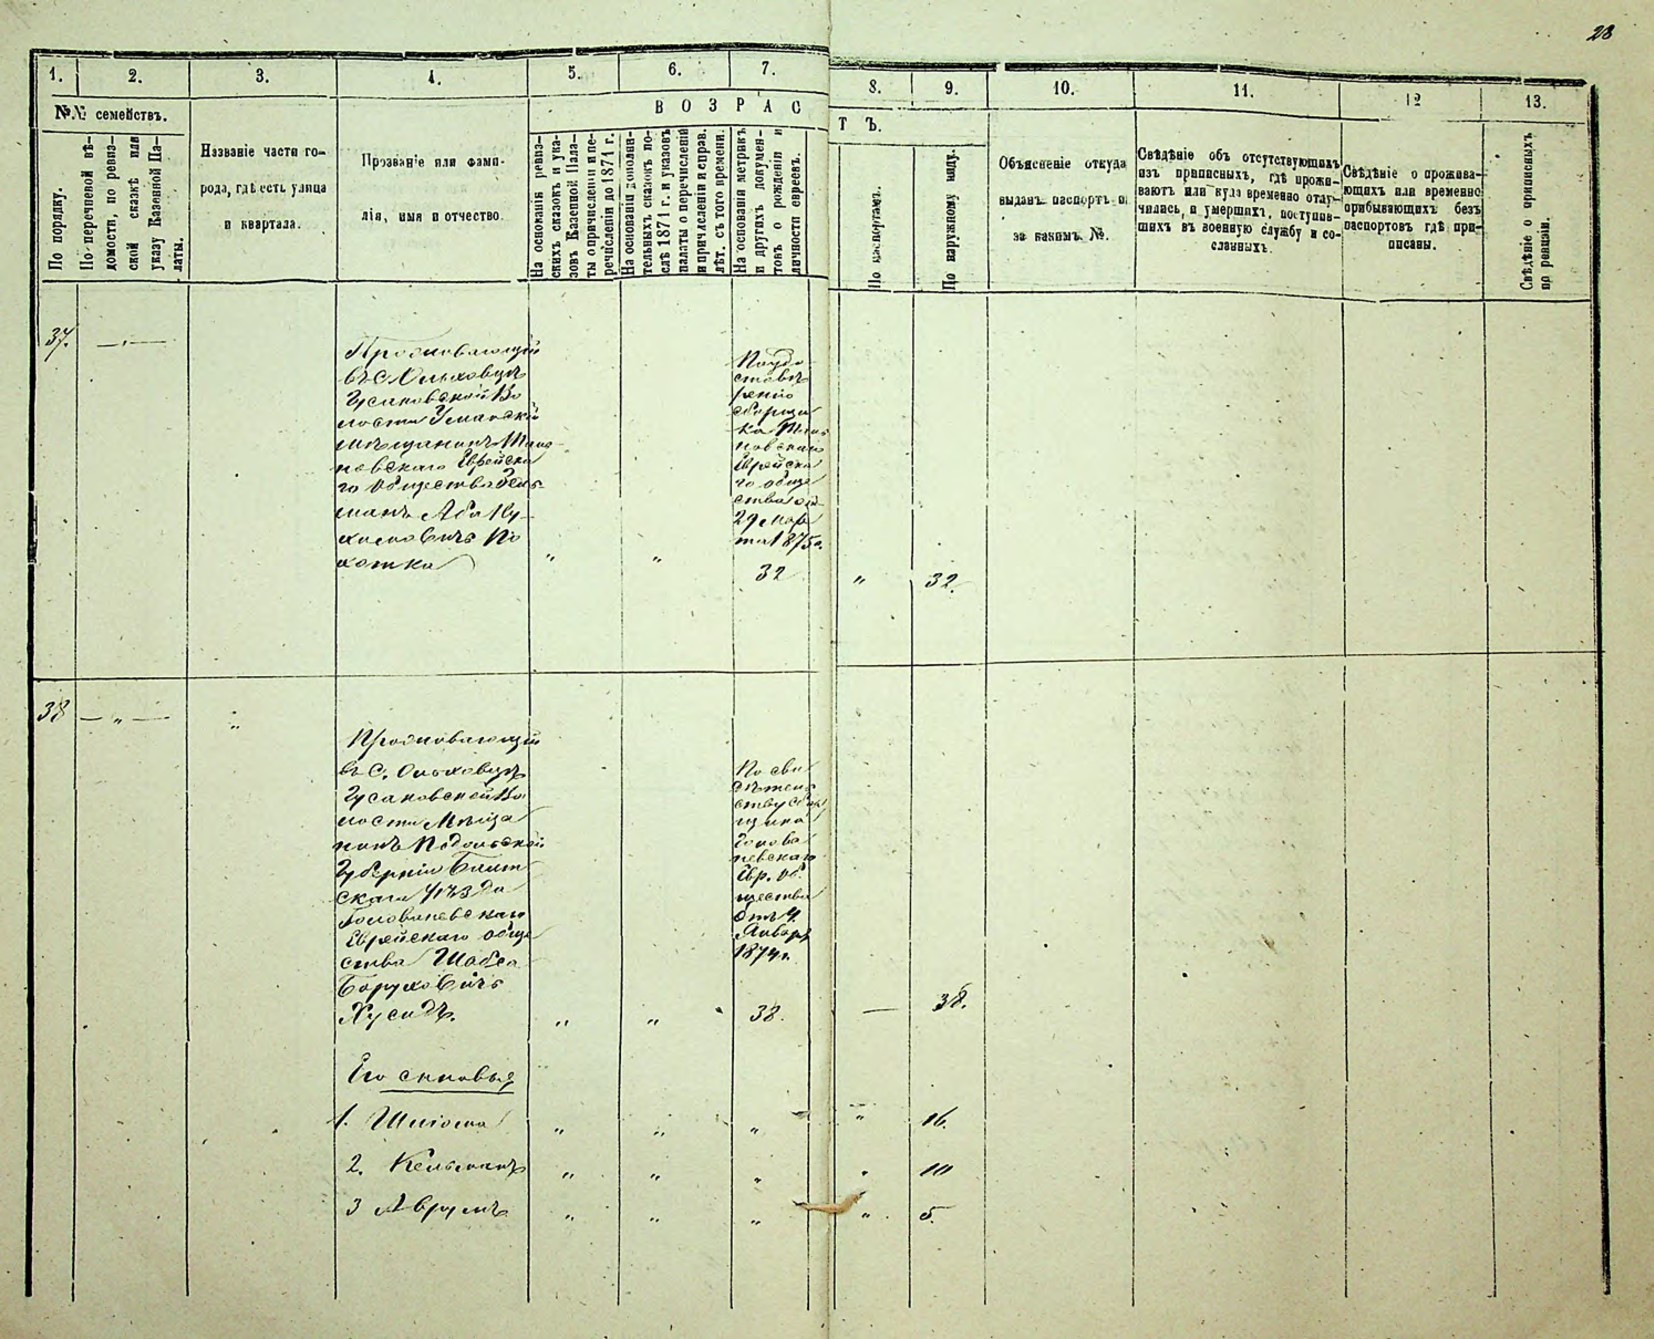 28
1. 2. 3. 4. 5. 6. 7. 8. 9. 10. 11. 12 13.
№№ семействъ.
По порядку.
По перечневой вѣ-
домости, по ревиз-
ской сказкѣ или
указу Казенной Па-
латы.
Названіе части го-
рода, гдѣ есть улица
и квартала.
Прозваніе или фами-
лія, имя и отчество.
ВОЗРАСТЪ.
На основаніи ревиз-
скихъ сказокъ и ука-
зовъ Казенной Пала-
ты о причисленіи и пе-
речисленіи до 1871 г.
На основаніи дополни-
тельныхъ сказокъ по-
слѣ 1871 г. и указовъ
палаты о перечисленіи
и причисленіи и справ.
лѣт. съ того времени.
На основаніи метрикъ
и другихъ докумен-
товъ о рожденіи и
личности евреевъ.
По паспортамъ.
По наружному виду.
Объясненіе откуда
выданъ паспортъ и
за какимъ №.
Свѣдѣніе объ отсутствующихъ
изъ приписныхъ, гдѣ прожи-
ваютъ или куда временно отлу-
чились, и умершихъ, поступив-
шихъ въ военную службу и со-
сланныхъ.
Свѣдѣніе о прожива-
ющихъ или временно
прибывающихъ безъ
паспортовъ гдѣ при-
писаны.
Свѣдѣніе о приписныхъ
по ревизіи.
37.
Проживающій
въ С. Ольховцѣ
Гусаковской Во
лости Уманскій
мѣщанинъ
новскаго Еврейска
го общества
манъ Аба Ну-
химовичъ По
хотка " "
По удо
стовѣ
ренію
сборщи
ка
новскаго
Еврейска
го обще
ства отъ
29 Мар
та 1875 г.
32 " 32.
38 — " — "
Проживающій
въ С. Ольховцѣ
Гусаковской Во
лости Мѣща
нинъ Подольской
Губерніи Балт
скаго Уѣзда
Голованевскаго
Еврейскаго обще
ства Шабса
Боруховичъ
Хусидъ. " "
По сви
дѣтель
ству сбор
щика
Голова
невскаго
Евр. Об
щества
Отъ 4
Января
1874 г.
38. — 38.
Его сыновья
1. Шліома " " " " 16.
2. Кельманъ " " " " 10
3 Аврумъ " " " " 5.